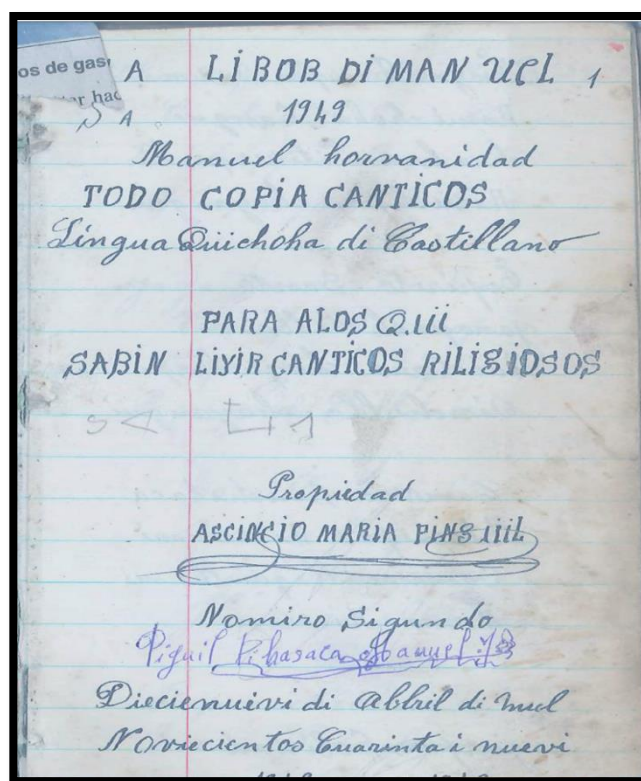 os de gas
A LIBOB DI MANUEL 1
A 1949
Manuel horvanidad
TODO COPIA CANTICOS
Lingua Quichoha di Castillano
PARA ALOS QUI
SABIN LIYIR CANTICOS RILIGIOSOS
Propiedad
ASCINCIO MARIA
Nomiro Sigundo
Manuel
Diecienuivi di Abbril di mil
Noviecientos Cuarinta i nuevi